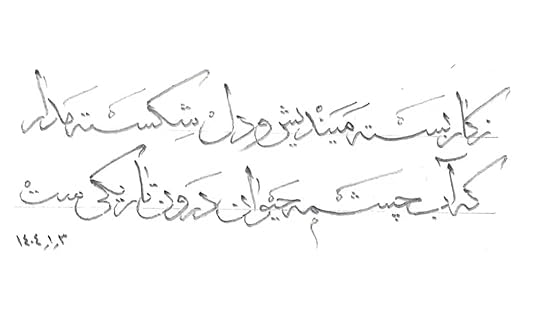 ز کار بسته میندیش و دل شکسته مدار
که آب چشمه حیوان درون تاریکی ست
۱۴۰۴٫۱٫۳